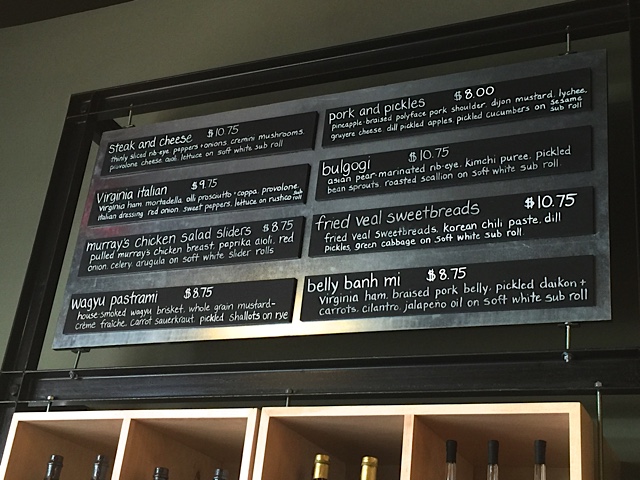 steak and cheese $10.75
thinly sliced rib-eye. peppers + onions. cremini mushrooms.
provolone cheese. aioli. lettuce on soft white sub roll
Virginia italian $9.75
Virginia ham. mortadella. olli prosciutto + coppa. provolone.
italian dressing. red onion. sweet peppers. lettuce on rustico sub roll
murray's chicken salad sliders $8.75
pulled murray's chicken breast. paprika aioli. red
onion. celery. arugula on soft white slider rolls
wagyu pastrami $8.75
house-smoked wagyu brisket. whole grain mustard-
crème fraîche. carrot sauerkraut. pickled shallots on rye
pork and pickles $8.00
pineapple-braised polyface pork shoulder. dijon mustard. lychee.
gruyere cheese. dill pickled apples. pickled cucumbers on sesame sub roll
bulgogi $10.75
asian pear-marinated rib-eye. kimchi puree. pickled
bean sprouts. roasted scallion on soft white sub roll.
fried veal sweetbreads $10.75
fried veal sweetbreads. korean chili paste. dill
pickles. green cabbage on soft white sub roll.
belly banh mi $8.75
Virginia ham. braised pork belly. pickled daikon +
carrots. cilantro. jalapeño oil on soft white sub roll